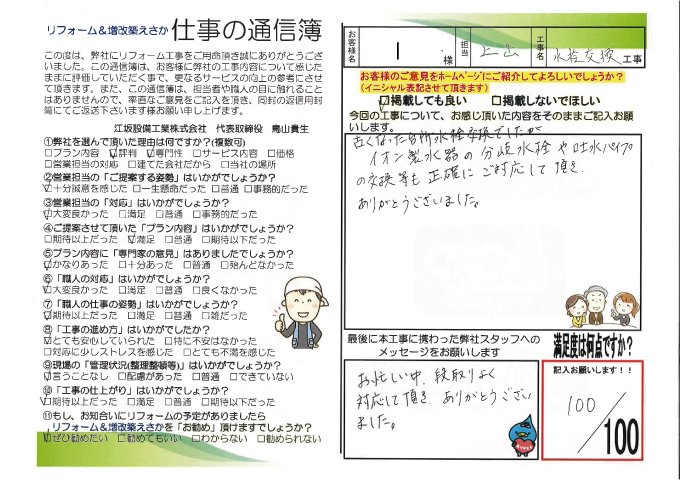 リフォーム&増改築えさか 仕事の通信簿
この度は、弊社にリフォーム工事をご用命頂き誠にありがとうござ
いました。この通信簿は、お客様に弊社の工事内容について感じた
ままに評価していただく事で、更なるサービスの向上の参考にさせ
て頂きます。また、この通信簿は、担当者や職人の目に触れること
はありませんので、率直なご意見をご記入を頂き、同封の返信用封
筒にてご返送下さいます様お願い申し上げます。
江坂設備工業株式会社 代表取締役 鳥山貴生
①弊社を選んで頂いた理由は何ですか?(複数可)
□プラン内容 ☑評判 ☑専門性 □サービス内容 □価格
□営業担当の対応 □建てた会社だから □当社の場所
②営業担当の「ご提案する姿勢」はいかがでしょうか?
☑十分誠意を感じた □一生懸命だった □普通 □事務的だった
③営業担当の「対応」はいかがでしょうか?
☑大変良かった □満足 □普通 □事務的だった
④ご提案させて頂いた「プラン内容」はいかがでしょうか?
□期待以上だった ☑満足 □普通 □期待以下だった
⑤プラン内容に「専門家の意見」はありましたでしょうか?
☑かなりあった □十分あった □普通 □殆んどなかった
⑥「職人の対応」はいかがでしょうか?
☑大変良かった □満足 □普通 □良くなかった
⑦「職人の仕事の姿勢」はいかがでしょうか?
☑期待以上だった □満足 □普通 □雑だった
⑧「工事の進め方」はいかがでしたか?
☑とても安心していられた □特に不安はなかった
□対応に少しストレスを感じた □とても不満を感じた
⑨現場の「管理状況(整理整頓等)」はいかがでしょうか?
☑言うことなし □配慮があった □普通 □できていない
⑩「工事の仕上がり」はいかがでしょうか?
☑期待以上だった □満足 □普通 □期待以下だった
⑪もし、お知合いにリフォームの予定がありましたら
リフォーム&増改築えさかを「お勧め」頂けますでしょうか?
☑ぜひ勧めたい □勧めてもいい □わからない □勧められない
お客様名 I 様 担当 上山 工事名 水栓交換 工事
お客様のご意見をホームページにご紹介してよろしいでしょうか?
(イニシャル表記させて頂きます)
☑掲載しても良い □掲載しないでほしい
今回の工事について、お感じ頂いた内容をそのままご記入お願
いします。
古くなった台所水栓交換でしたが
イオン製水器の分岐水栓や吐水パイプ
の交換等も正確にご対応して頂き
ありがとうございました。
最後に本工事に携わった弊社スタッフへの
メッセージをお願いします
お忙しい中、段取りよく
対応して頂き、ありがとうござい
ました。
満足度は何点ですか?
記入お願いします!!
100/100